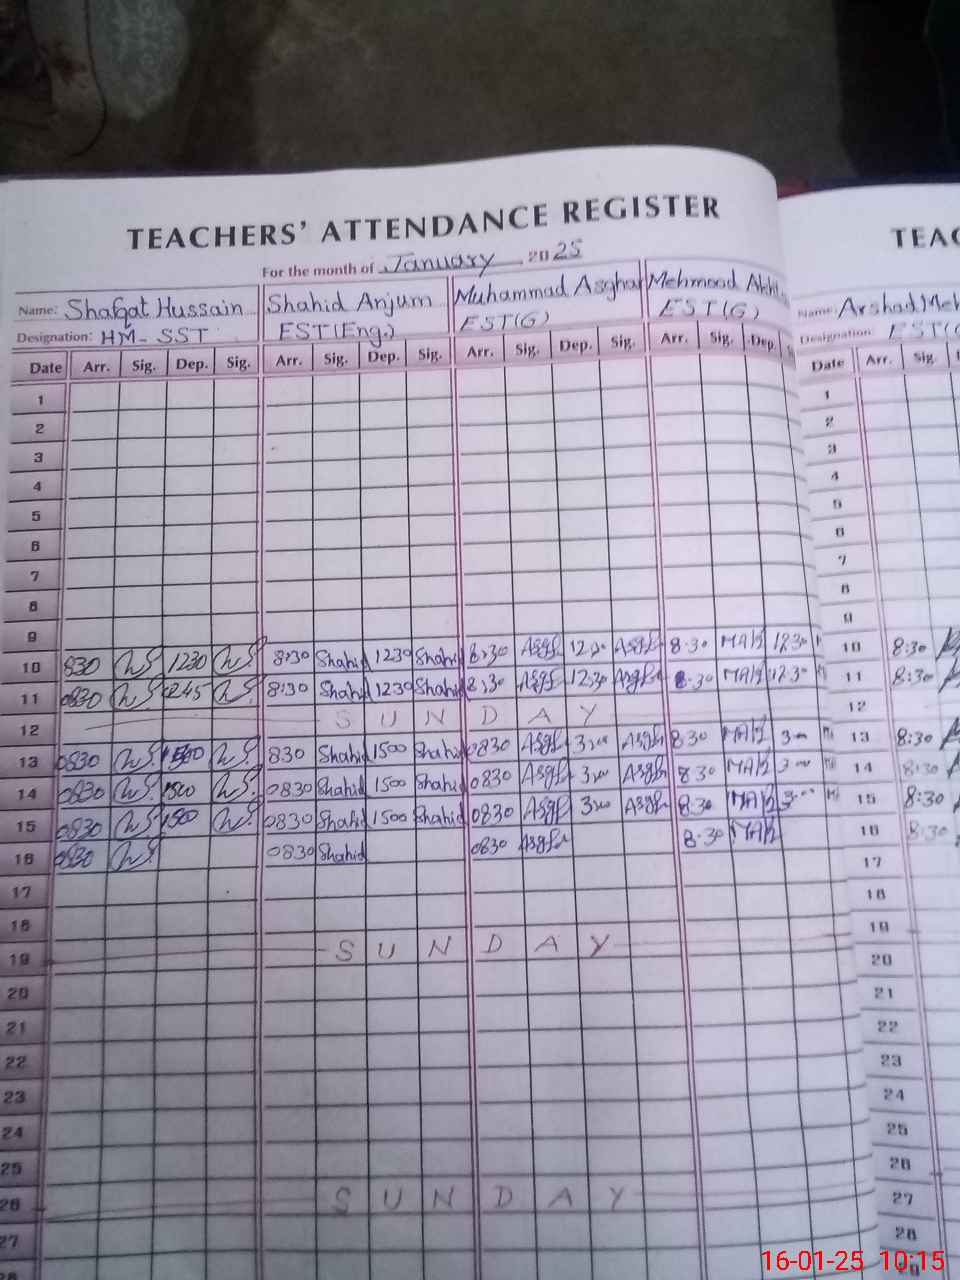 TEACHERS' ATTENDANCE REGISTER
For the month of January 2025
Name: Shafqat Hussain Shahid Anjum Muhammad Asghar Mehmood
Designation: HM-SST EST(Eng.) EST(G) EST(G)
Date Arr. Sig. Dep. Sig. Arr. Sig. Dep. Sig. Arr. Sig. Dep. Sig. Arr. Sig. Dep.
1
2
3
4
5
6
7
8
9
10 830 1230 8:30 Shahid 1230 Shahid 8:30 Asgh 12:30 8:30 MAK 12:30
11 0830 1245 8:30 Shahid 1230 Shahid 8:30 12:30 8:30 MAK 12:30
12 SUNDAY
13 0830 1500 830 Shahid 1500 Shahid 0830 300 830 MAK 300
14 0830 1500 0830 Shahid 1500 Shahid 0830 300 830 MAK 300
15 0830 1500 0830 Shahid 1500 Shahid 0830 300 8:30 MAK 300
16 0830 0830 Shahid 0830 8:30 MAK
17
18
19 SUNDAY
20
21
22
23
24
25
26 SUNDAY
27
28
TEAC
Name: Arshad Meh
Designation: EST(
Date Arr. Sig.
1
2
3
4
5
6
7
8
9
10 8:30
11 8:30
12
13 8:30
14 8:30
15 8:30
16 8:30
17
18
19
20
21
22
23
24
25
26
27
28
29
16-01-25 10:15